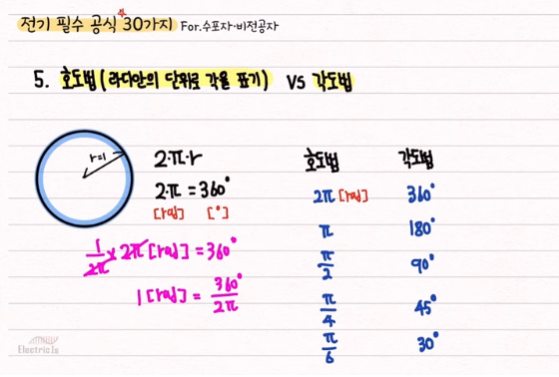 전기 필수 공식 30가지 For.수포자·비전공자
5. 호도법 (라디안의 단위로 각을 표기) vs 각도법
r=1
2·π·r
2·π = 360°
[rad] [°]
1/2π × 2π [rad] = 360°
1 [rad] = 360°/2π
호도법 각도법
2π [rad] 360°
π 180°
π/2 90°
π/4 45°
π/6 30°
ElectricIs